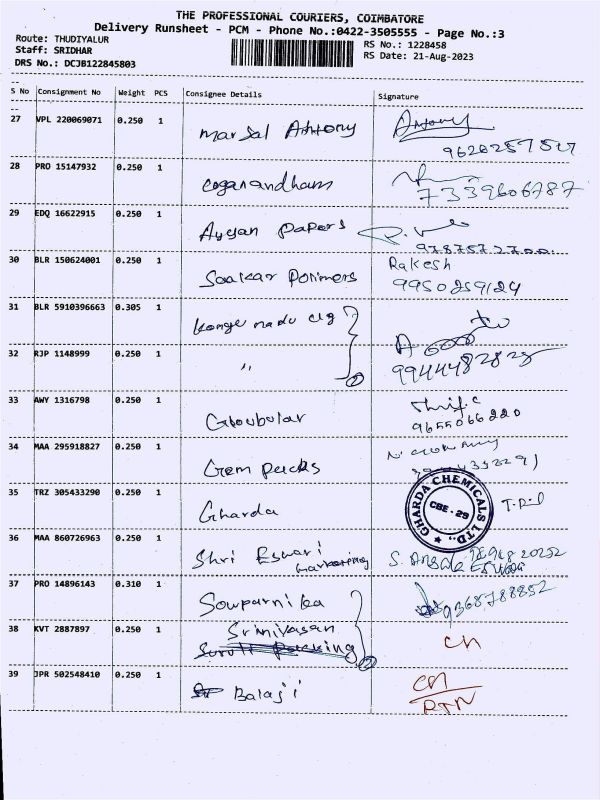 THE PROFESSIONAL COURIERS, COIMBATORE
Delivery Runsheet - PCM - Phone No.:0422-3505555 - Page No.:3
Route: THUDIYALUR
RS No.: 1228458
Staff: SRIDHAR
RS Date: 21-Aug-2023
DRS No.: DCJB122845803
S No Consignment No Weight PCS Consignee Details Signature
27 VPL 220069071 0.250 1 Marsal Antony Antony
28 PRO 15147932 0.250 1 Loganandham
7339606787
29 EDQ 16622915 0.250 1 Ayyan Papers
9787572700
30 BLR 150624001 0.250 1 Saakar Polimers Rakesh
9950259124
31 BLR 5910396663 0.305 1 Konge nadu clg
32 RJP 1148999 0.250 1 "
2
33 AWY 1316798 0.250 1
9655066220
34 MAA 295918827 0.250 1 Gem packs
35 TRZ 305433290 0.250 1 Gharda
GHARDA CHEMICALS LTD.,
CBE - 29
36 MAA 860726963 0.250 1 Shri Eswari
Marketing
37 PRO 14896143 0.310 1 Sowparnika
9367788852
38 KVT 2887897 0.250 1 Srinivasan CN
2
39 JPR 502548410 0.250 1 Balaji CN
RTN